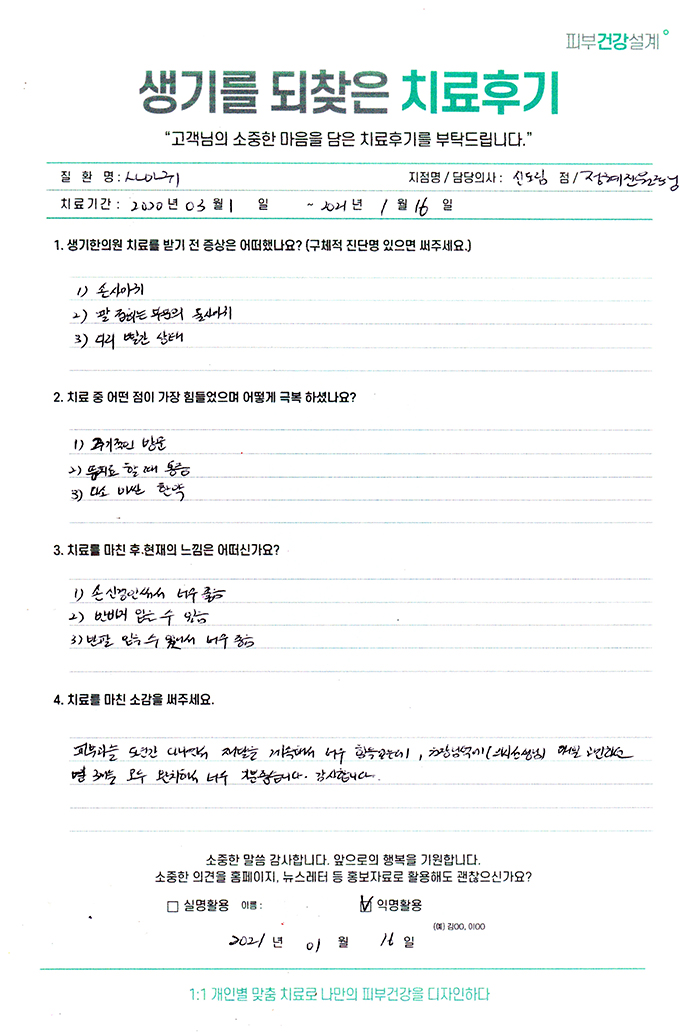 피부건강설계
생기를 되찾은 치료후기
“고객님의 소중한 마음을 담은 치료후기를 부탁드립니다.”
질 환 명 : 사마귀 지점명 / 담당의사 : 신도림 점 / 정혜진원장님
치료기간 : 2020 년 03 월 1 일 ~ 2021 년 1 월 16 일
1. 생기한의원 치료를 받기 전 증상은 어떠했나요? (구체적 진단명 있으면 써주세요.)
1) 손사마귀
2) 팔 물사마귀
3) 다리 빨간 상태
2. 치료 중 어떤 점이 가장 힘들었으며 어떻게 극복 하셨나요?
1) 주기적인 방문
2) 뜸치료 할 때 통증
3) 다소 비싼 한약
3. 치료를 마친 후 현재의 느낌은 어떠신가요?
1) 손 신경안써서 너무 좋음
2) 반바지 입는 수 있음
3) 반팔 입는 수 있어서 너무 좋음
4. 치료를 마친 소감을 써주세요.
피부과를 5년간 다니면서 재발을 계속해서 너무 힘들었는데,
모두 완치해서 너무 기분좋습니다. 감사합니다.
소중한 말씀 감사합니다. 앞으로의 행복을 기원합니다.
소중한 의견을 홈페이지, 뉴스레터 등 홍보자료로 활용해도 괜찮으신가요?
실명활용 이름 : 익명활용
(예) 김OO, 이OO
2021 년 01 월 16 일
1:1 개인별 맞춤 치료로 나만의 피부건강을 디자인하다